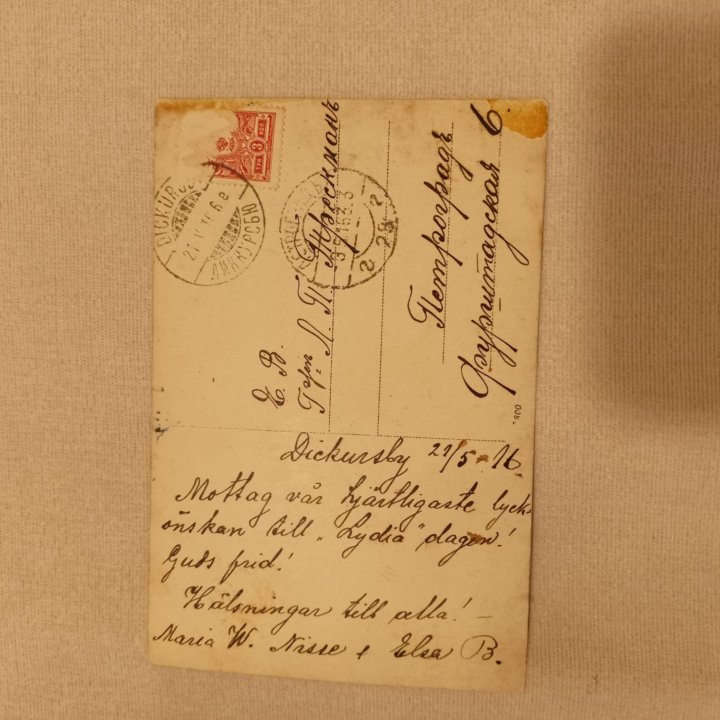 3 КОП
ТРИ
DICKURSBY
ДИККУРСБЮ
Е. В.
Г-жѣ Л. П. Прескманъ
Петроградъ
Фурштадская 6
Dickursby 21/5 - 16
Mottag vår hjärtligaste lyck-
önskan till „Lydia" dagen!
Guds frid!
Hälsningar till alla! -
Maria W. Nisse & Elsa B.